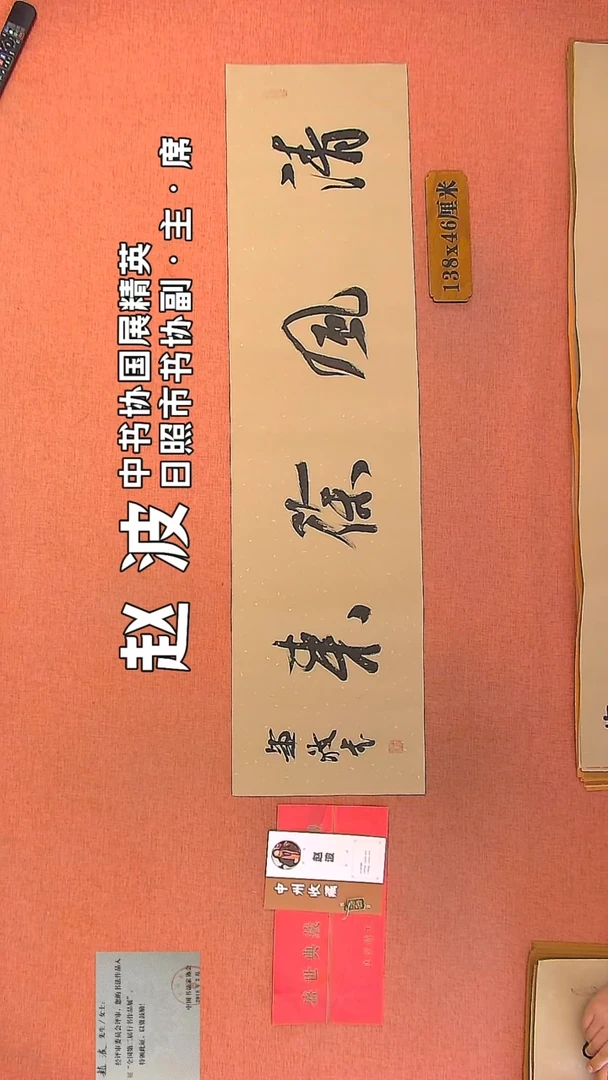 赵波
中书协国展精英
日照市书协副·主·席
清风徐来
138x46厘米
赵波
中州收藏
盛世典藏
赵波 先生/女士:
经评审委员会评审,您的书法作品入
展“全国第二届行书作品展”,
特颁此证,以资鼓励!
中国书法家协会